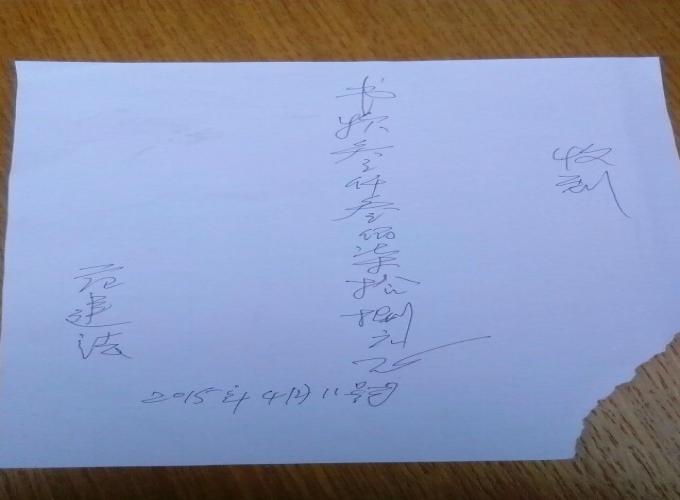 收到
书款叁仟叁佰柒拾捌元
范建法
2015年4月11号